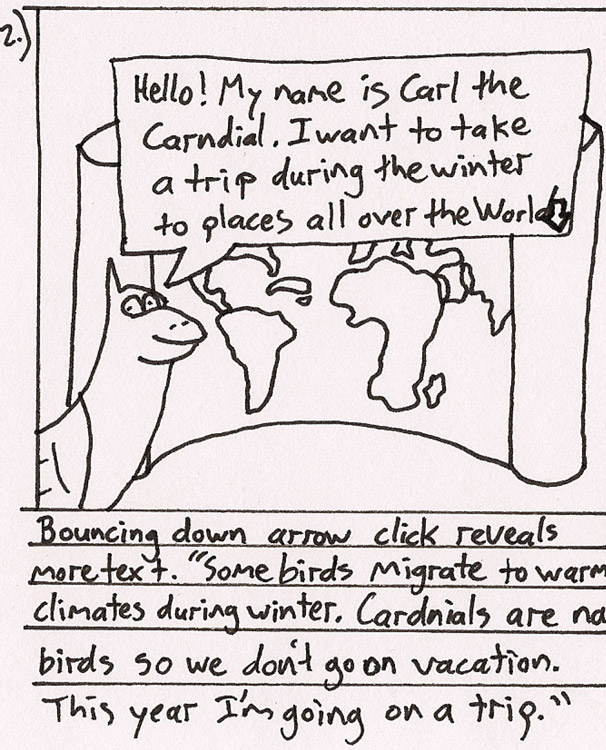 2.)
Hello! My name is Carl the
Carndial. I want to take
a trip during the winter
to places all over the World
Bouncing down arrow click reveals
more text. "Some birds migrate to warm
climates during winter. Cardnials are na
birds so we don't go on vacation.
This year I'm going on a trip."